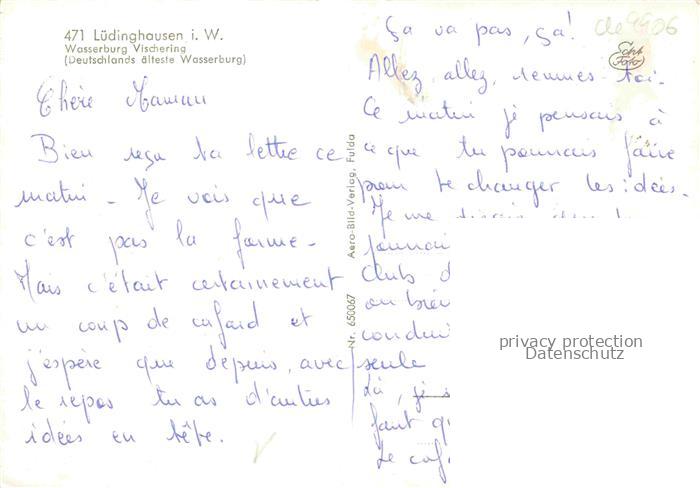 471 Lüdinghausen i. W.
Wasserburg Vischering
(Deutschlands älteste Wasserburg)
Chère Maman
Bien reçu ta lettre ce
matin - Je vois que
c'est pas la forme -
Mais c'était certainement
un coup de cafard et
j'espère que depuis, avec
le repos tu as d'autres
idées en tête.
Nr. 650067 Aero-Bild-Verlag, Fulda
cle9906
Echt Foto
Ça va pas, ça!
Allez, allez, remues-toi-
Ce matin je pensais à
ce que tu pourrais faire
pour te changer les idées.
Je me
pourrai
Clubs d
ou bien
condui
seule
Là, je
faut q
Le caf
privacy protection
Datenschutz